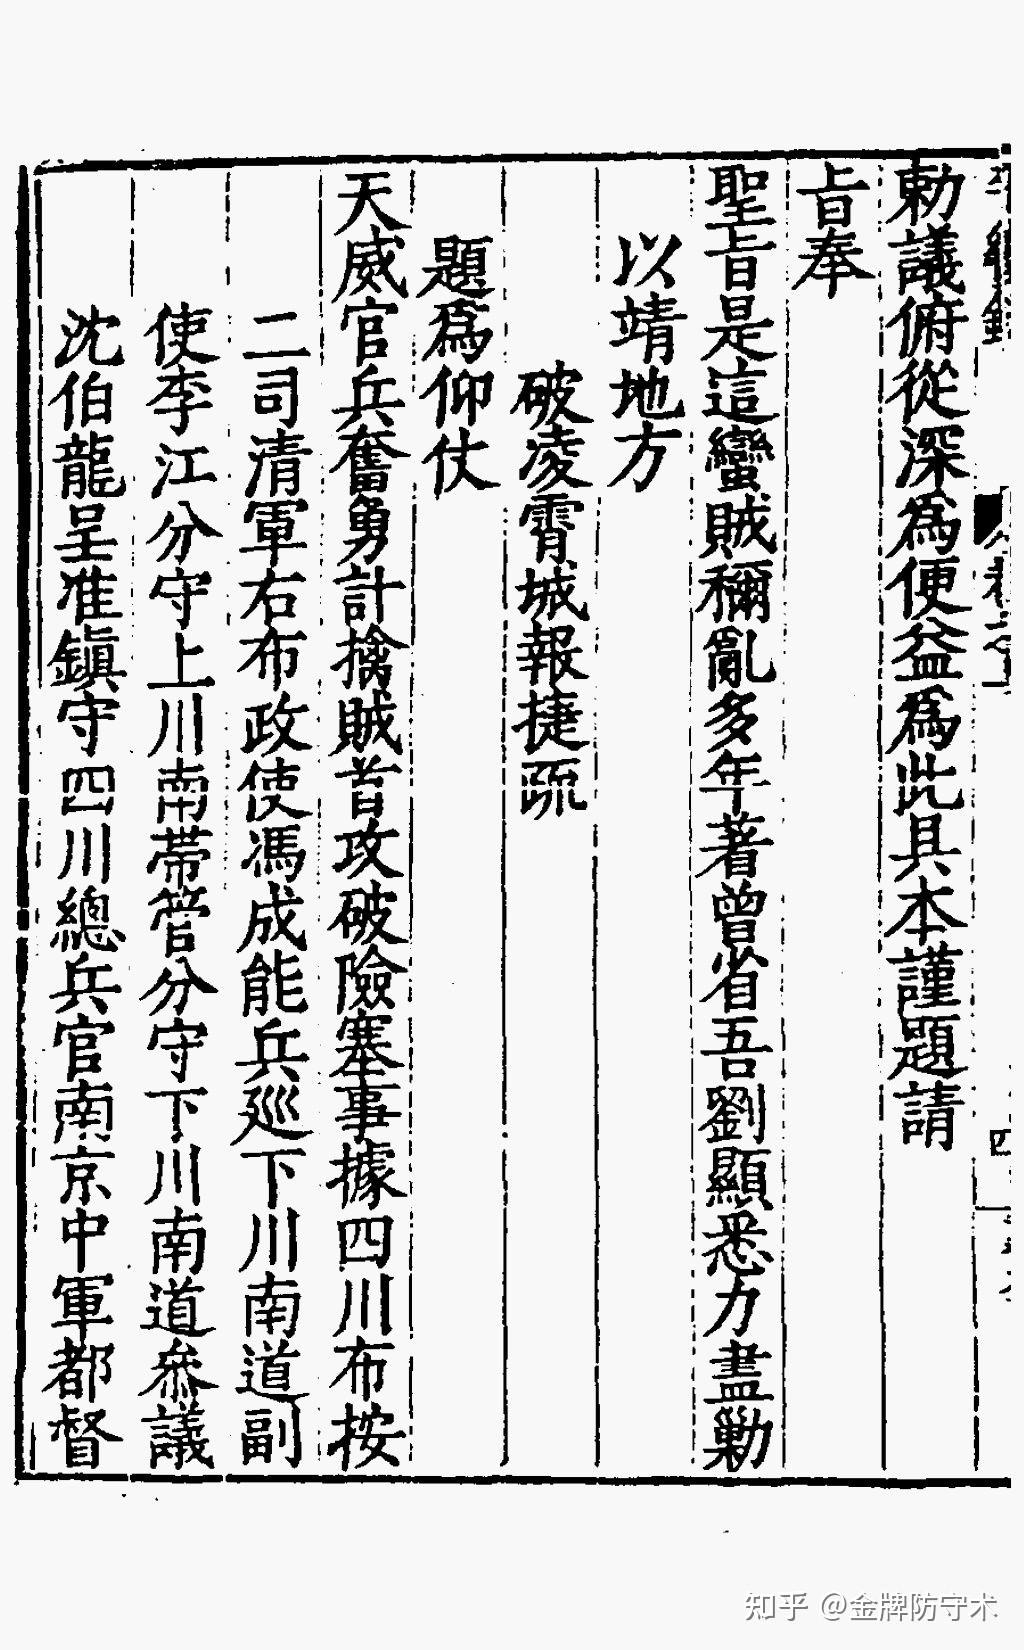 勅議俯從深爲便益爲此具本謹題請
旨奉
聖旨是這蠻賊稱亂多年著曾省吾劉顯悉力盡勦
以靖地方
破凌霄城報捷疏
題爲仰仗
天威官兵奮勇計擒賊首攻破險塞事據四川布按
二司清軍右布政使馮成能兵廵下川南道副
使李江分守上川南帶管分守下川南道叅議
沈伯龍呈准鎭守四川總兵官南京中軍都督
知乎 @金牌防守术